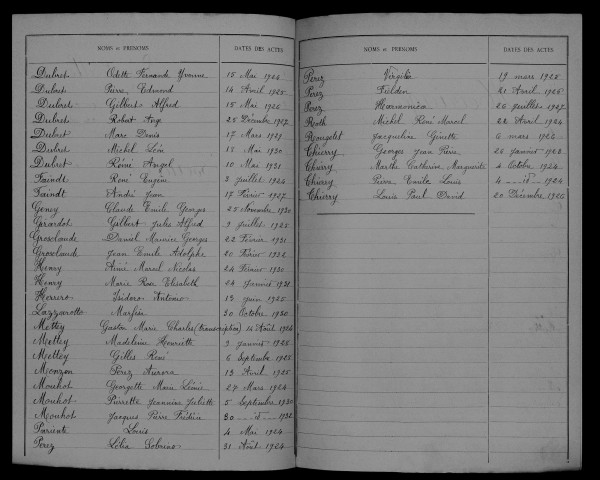 NOMS et PRÉNOMS DATES DES ACTES
Dubret Odette Fernande Yvonne 15 Mai 1924
Dubret Pierre Edmond 14 Avril 1925
Dubret Gilbert Alfred 15 Mai 1925
Dubret Robert Ange 25 Décembre 1927
Dubret Marc Denis 17 Mars 1929
Dubret Michel Léon 12 Mai 1930
Dubret Rémé Angel 10 Mai 1931
Faindt René Eugène 3 Juillet 1924
Faindt André Jean 17 Février 1927
Geney Claude Emile Georges 25 Novembre 1930
Girardot Gilbert Jules Alfred 9 Juillet 1925
Grosclaude Daniel Maurice Georges 22 Février 1931
Grosclaude Jean Emile Adolphe 20 Février 1932
Henry Aimé Marcel Nicolas 24 Février 1930
Henry Marie Rose Elisabeth 24 Janvier 1931
Herrero Isidoro Antonio 13 Juin 1925
Lazzarotto 30 Octobre 1930
Mettey Gaston Marie Charles (transcription) 14 Août 1924
Mettey Madeleine Henriette 9 Janvier 1925
Mettey Gilles René 6 Septembre 1928
Monzon Perez Aurora 13 Avril 1925
Mouhot Georgette Marie 27 Mars 1924
Mouhot Pierrette Jeannine Juliette 5 Septembre 1930
Mouhot Jacques Pierre Frédéric 30 — d° — 1932
Pariente Louis 4 Mai 1924
Perez Lélia Sobrino 31 Août 1924
NOMS et PRÉNOMS DATES DES ACTES
Perez Virgilia 19 mars 1925
Perez 21 Avril 1925
Perez Harmonica 26 juillet 1927
Roth Michel René Marcel 22 Avril 1924
Rougelot Jacqueline Ginette 6 mars 1924
Thierry Georges Jean Pierre 26 janvier 1923
Thierry Marthe Catherine Marguerite 4 Octobre 1924
Thierry Pierre Emile Louis 4 — d° — 1924
Thierry Louis Paul David 20 Décembre 1926